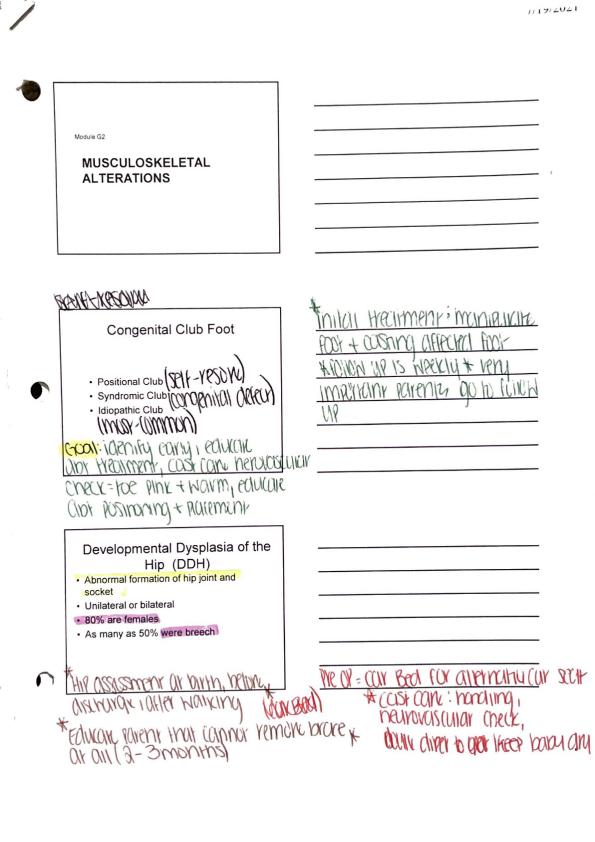 7/19/2021
Module G2
MUSCULOSKELETAL
ALTERATIONS
self-resolving
Congenital Club Foot
• Positional Club (self-resolve)
• Syndromic Club (congenital defect)
• Idiopathic Club
(most-common)
Goal: identify early, educate
abt treatment, cast care neurovascular
check=toe pink + warm, educate
abt positioning + placement
* initial treatment; manipulate
foot + casting affected foot
*follow up is weekly * very
important parents go to follow
up
Developmental Dysplasia of the
Hip (DDH)
• Abnormal formation of hip joint and
socket
• Unilateral or bilateral
• 80% are females
• As many as 50% were breech
* Hip assessment at birth, before
discharge, after walking
(car Bed)
* Educate parent that cannot remove brace *
at all (2-3 months)
Pre OP = car Bed for alternative car seat
* cast care: handling,
neurovascular check,
double diaper to keep baby dry